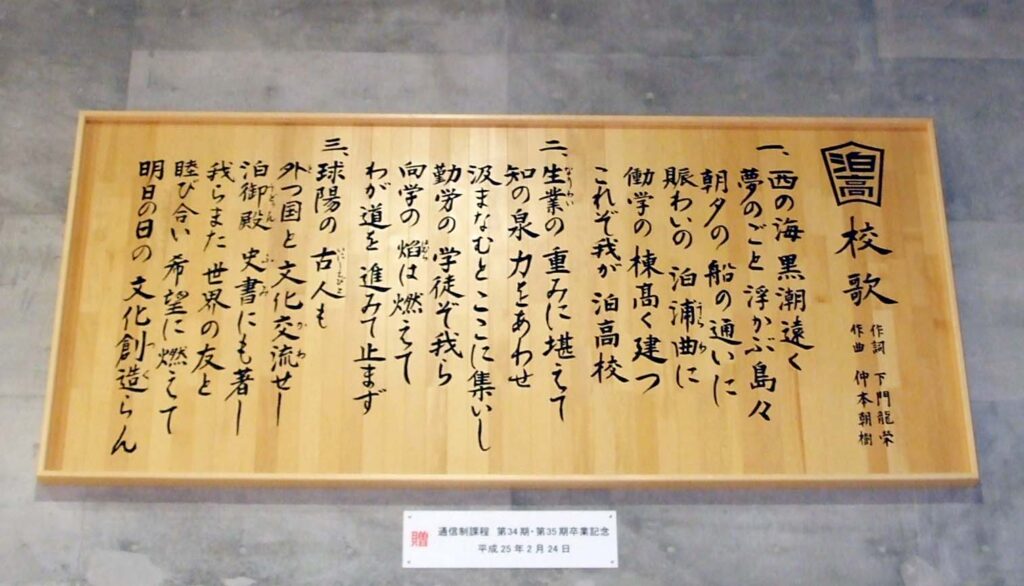 泊高
校歌
作詞 下門龍栄
作曲 仲本朝樹
一、西の海 黒潮遠く
夢のごと 浮かぶ島々
朝夕の 船の通いに
賑わいの 泊浦曲に
働学の 棟高く建つ
これぞ我が 泊高校
二、生業の 重みに堪えて
知の泉 力をあわせ
汲まなむと ここに集いし
勤労の 学徒ぞ我ら
向学の 焰は燃えて
わが道を 進みて止まず
三、球陽の 古人も
外つ国と 文化交流せし
泊御殿 史書にも著し
我らまた 世界の友と
睦び合い 希望に燃えて
明日の日の 文化創造らん
贈
通信制課程 第34期・第35期卒業記念
平成25年2月24日